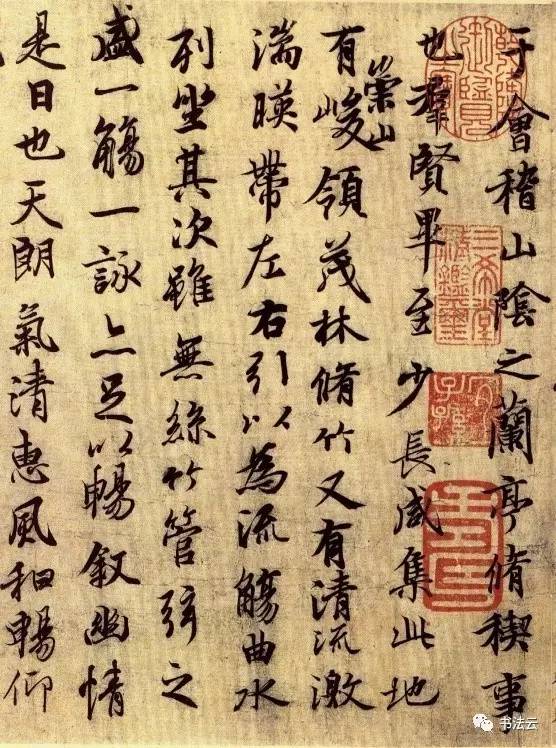 于會稽山陰之蘭亭脩稧事
也羣賢畢至少長咸集此地
有崇山峻領茂林脩竹又有清流激
湍暎帶左右引以為流觴曲水
列坐其次雖無絲竹管弦之
盛一觴一詠亦足以暢叙幽情
是日也天朗氣清惠風和暢仰
三希堂精鑑璽
宜子孫
书法云